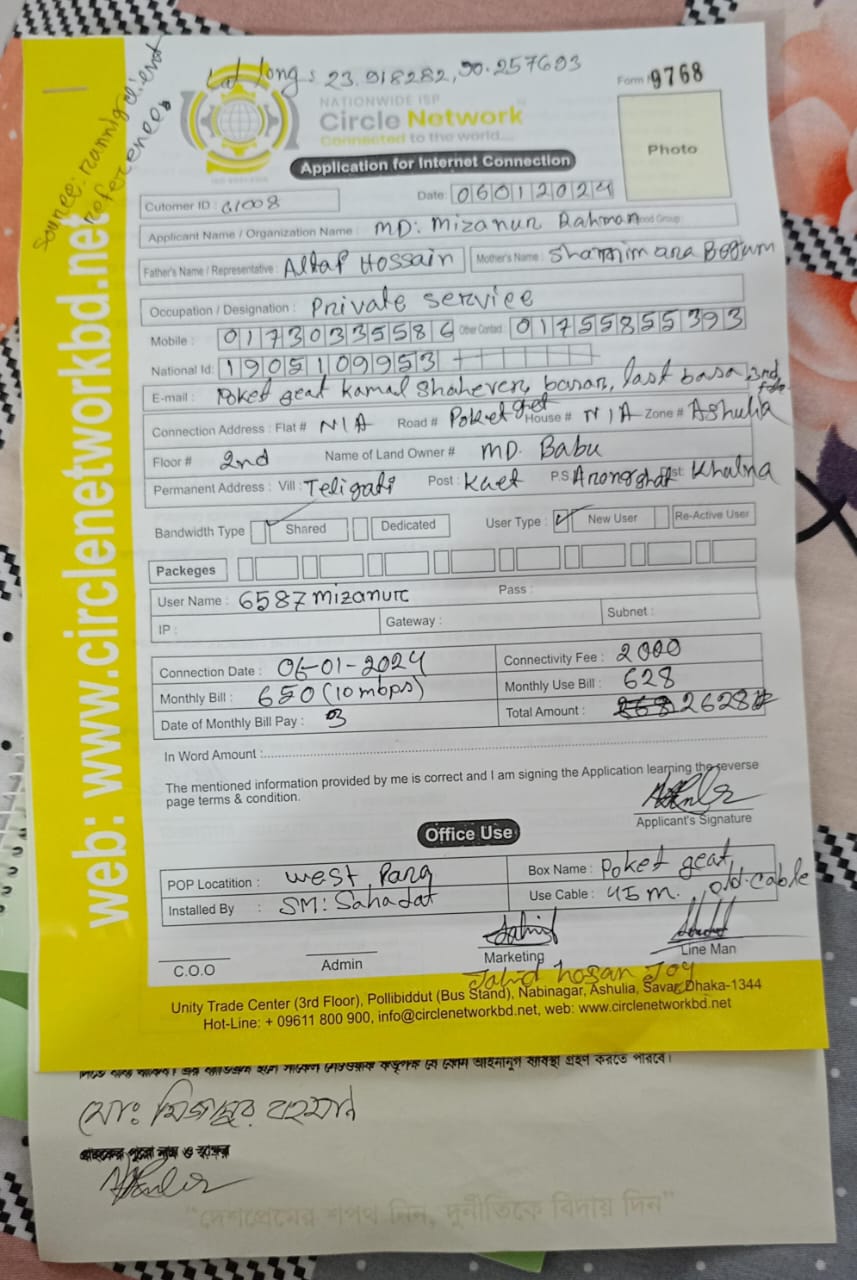 Lat Long: 23.918282, 90.257603
Source: running client reference
Form 9768
NATIONWIDE ISP
Circle Network
Connected to the world....
Application for Internet Connection
Photo
Cutomer ID : 61008
Date: 06012024
Applicant Name / Organization Name : MD: Mizanur Rahman
Father's Name / Representative : Altaf Hossain Mother's Name :
Occupation / Designation : Private service
Mobile : 01730335586 Other Contact : 01755855393
National Id: 1905109953
E-mail : Poket geat kamal last basa
Connection Address : Flat # N/A Road # Poket get House # N/A Zone # Ashulia
Floor # 2nd Name of Land Owner # MD. Babu
Permanent Address : Vill : Teligati Post : Kuet P.S Khulna
Bandwidth Type Shared Dedicated User Type : New User Re-Active User
Packeges
User Name : 6587mizanur Pass :
IP : Gateway : Subnet :
Connection Date : 06-01-2024 Connectivity Fee : 2000
Monthly Bill : 650 (10mbps) Monthly Use Bill : 628
Date of Monthly Bill Pay : Total Amount : 2628
In Word Amount :
The mentioned information provided by me is correct and I am signing the Application learning the reverse
page terms & condition.
Applicant's Signature
Office Use
POP Locatition : west Box Name : Poket geat
Installed By : SM: Sahadat Use Cable : 45m. old cable
C.O.O Admin Marketing Line Man
Jahid hosan Joy
Unity Trade Center (3rd Floor), Pollibiddut (Bus Stand), Nabinagar, Ashulia, Savar, Dhaka-1344
Hot-Line: + 09611 800 900, info@circlenetworkbd.net, web: www.circlenetworkbd.net
web: www.circlenetworkbd.net
মোঃ মিজানুর রহমান
"দেশপ্রেমের শপথ নিন, দুর্নীতিকে বিদায় দিন"